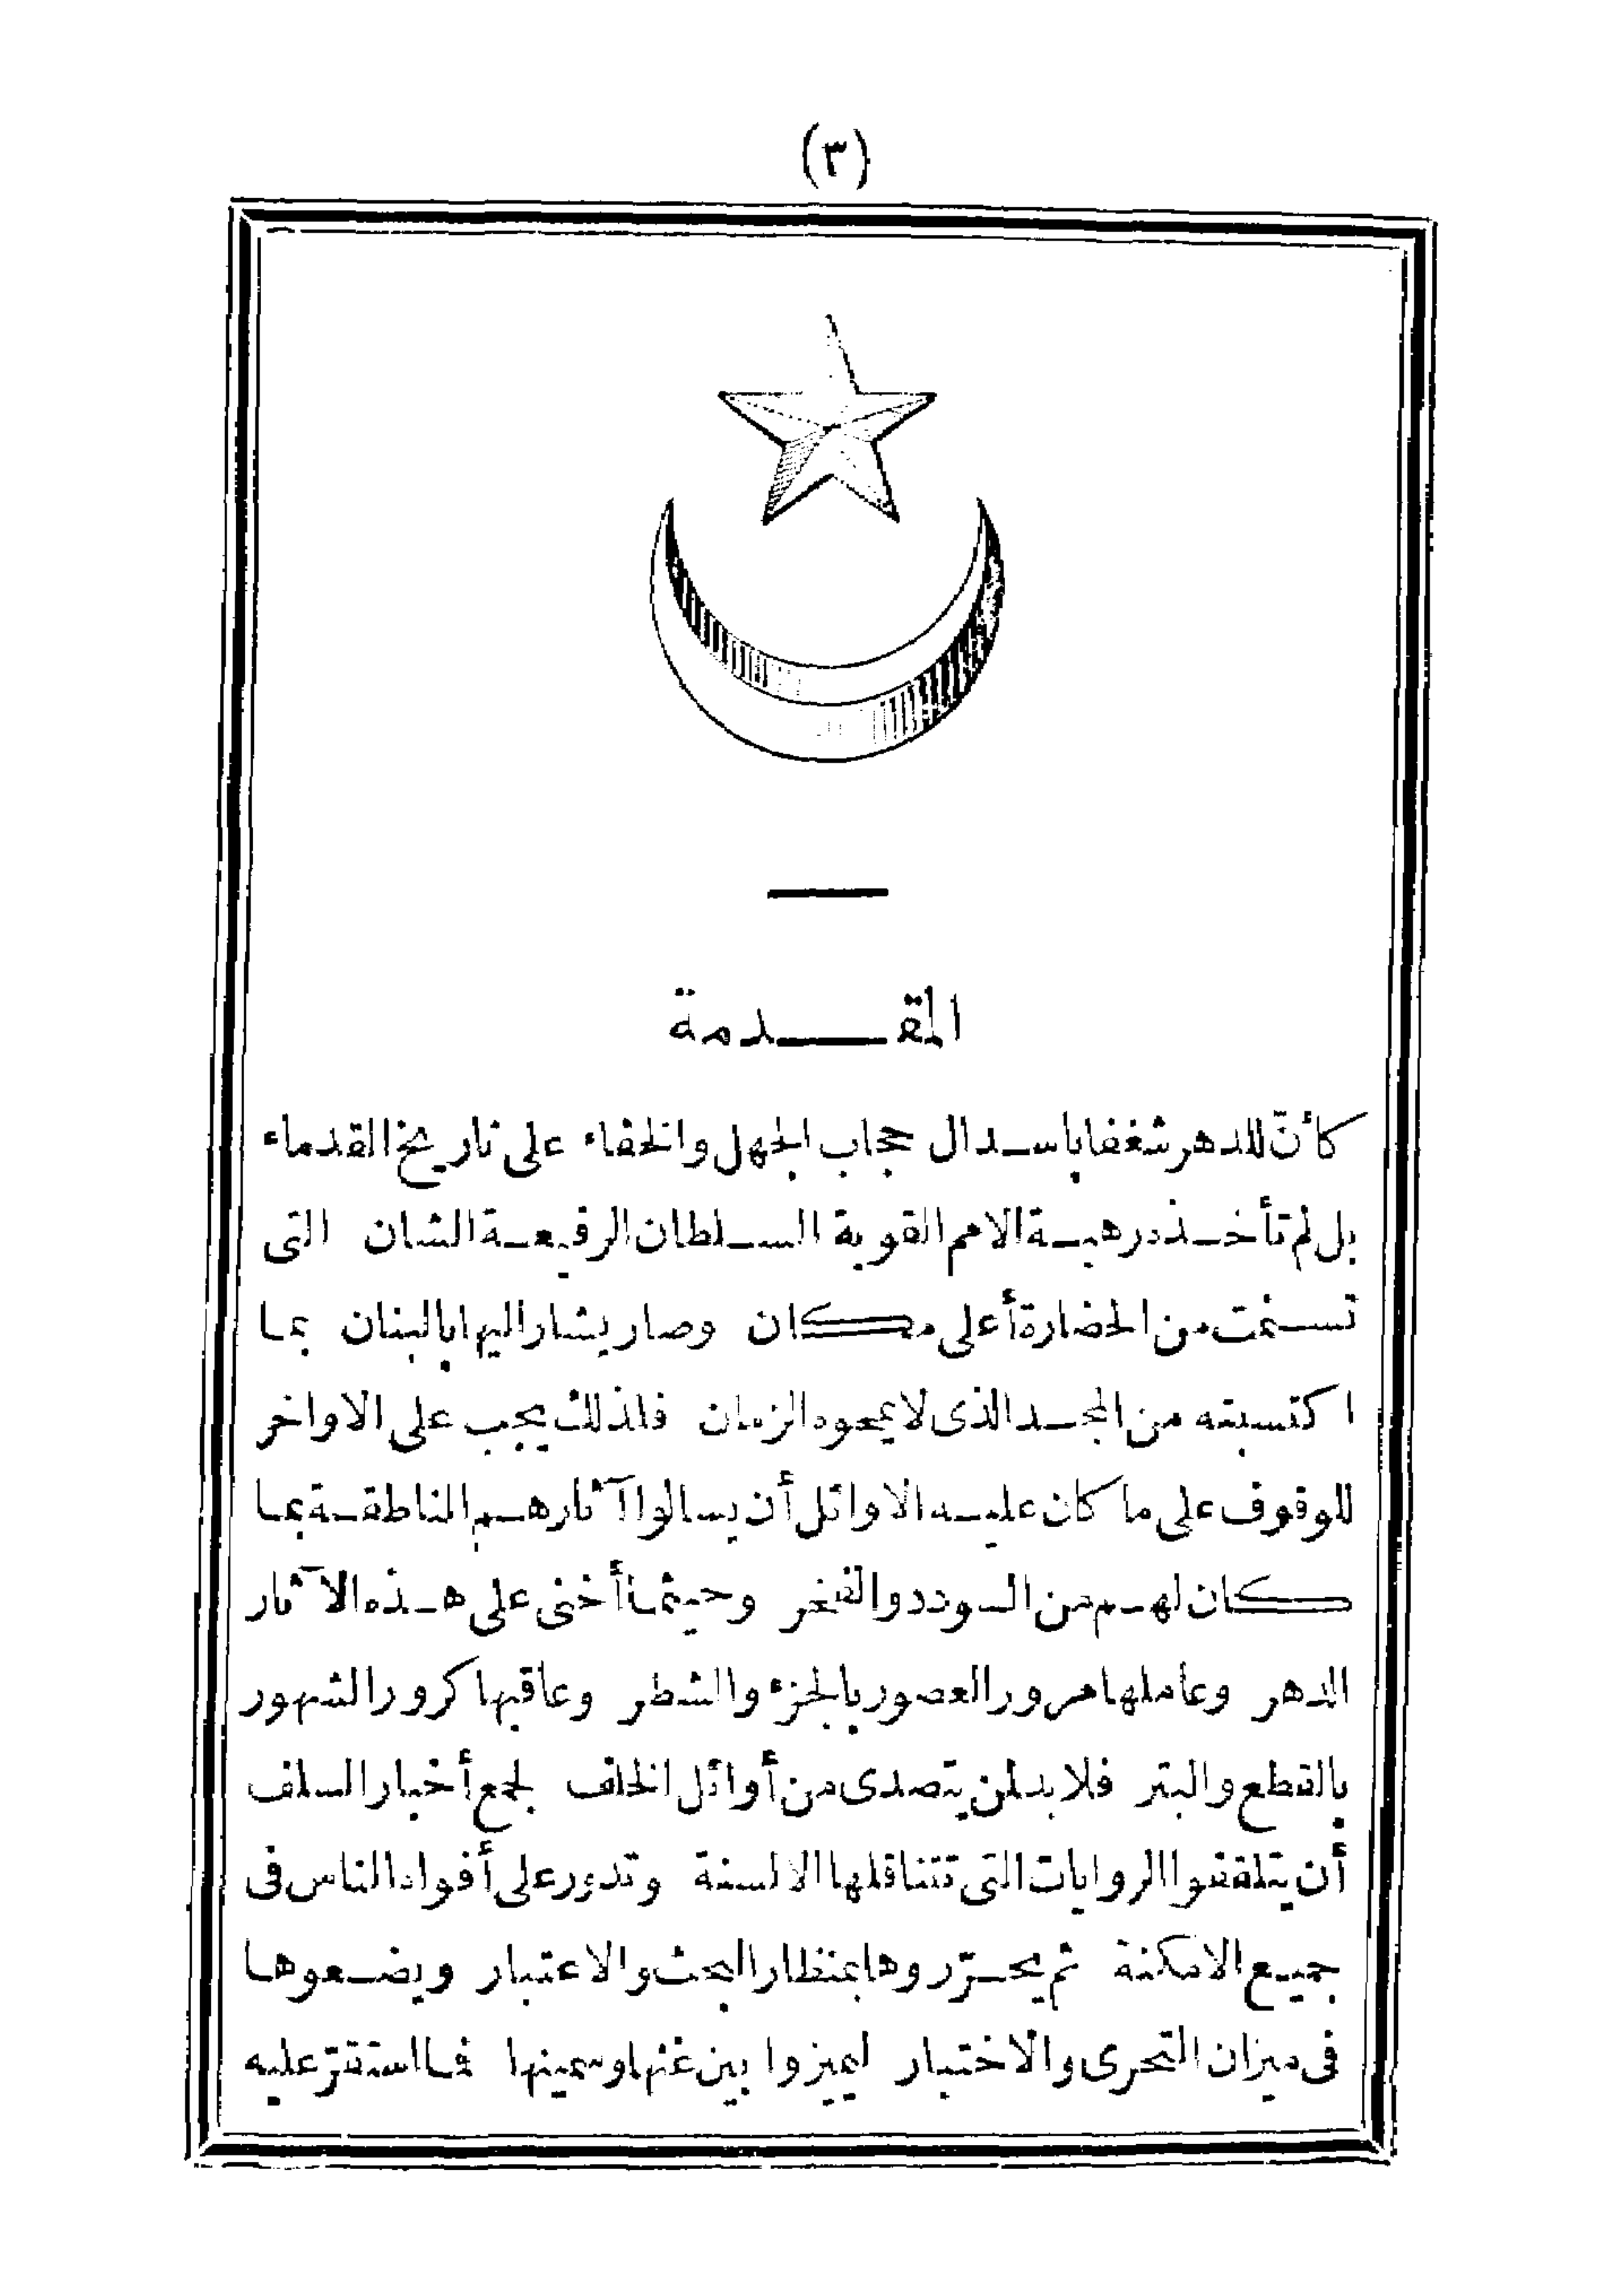 (٣)
المقدمة
كأنّ للدهر شغفا باسدال حجاب الجهل والخفاء على تاريخ القدماء
بل لم تأخذه رهبة الامم القوية السلطان الرفيعة الشان التى
تسنمت من الحضارة أعلى مكان وصار يشار اليها بالبنان بما
اكتسبته من المجد الذى لا يمحوه الزمان فلذلك يجب على الاواخر
للوقوف على ما كان عليه الاوائل أن يسالوا آثارهم الناطقة بما
كان لهم من السودد والفخر وحيثما أخنى على هذه الآثار
الدهر وعاملها مرور العصور بالجزء والشطر وعاقبها كرور الشهور
بالقطع والبتر فلا بد لمن يتصدى من أوائل الخلف لجمع أخبار السلف
أن يتلقفوا الروايات التى تتناقلها الالسنة وتدور على أفواه الناس فى
جميع الامكنة ثم يحرّروها بمنظار البحث والاعتبار ويضعوها
فى ميزان التحرى والاختبار ليميزوا بين غثها وسمينها فما استقرّ عليه